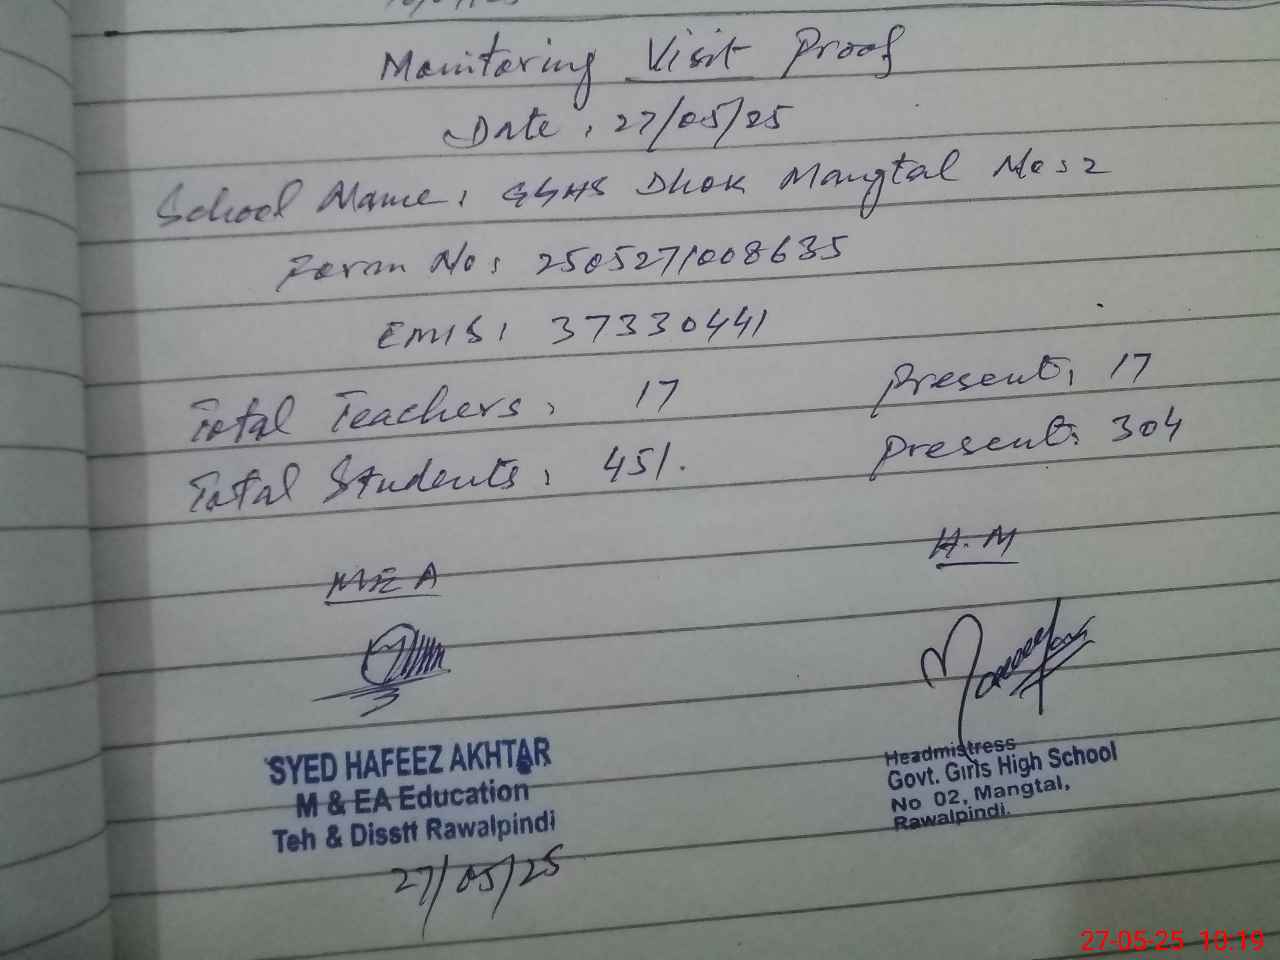 Monitoring Visit Proof
Date: 27/05/25
School Name: GGHS Dhok Mangtal No: 2
Form No: 2505271008635
EMIS: 37330441
Total Teachers: 17 Present: 17
Total Students: 451. Present: 304
MEA H.M
SYED HAFEEZ AKHTAR
M & EA Education
Teh & Disstt Rawalpindi
27/05/25
Headmistress
Govt. Girls High School
No 02, Mangtal,
Rawalpindi.
27-05-25 10:19